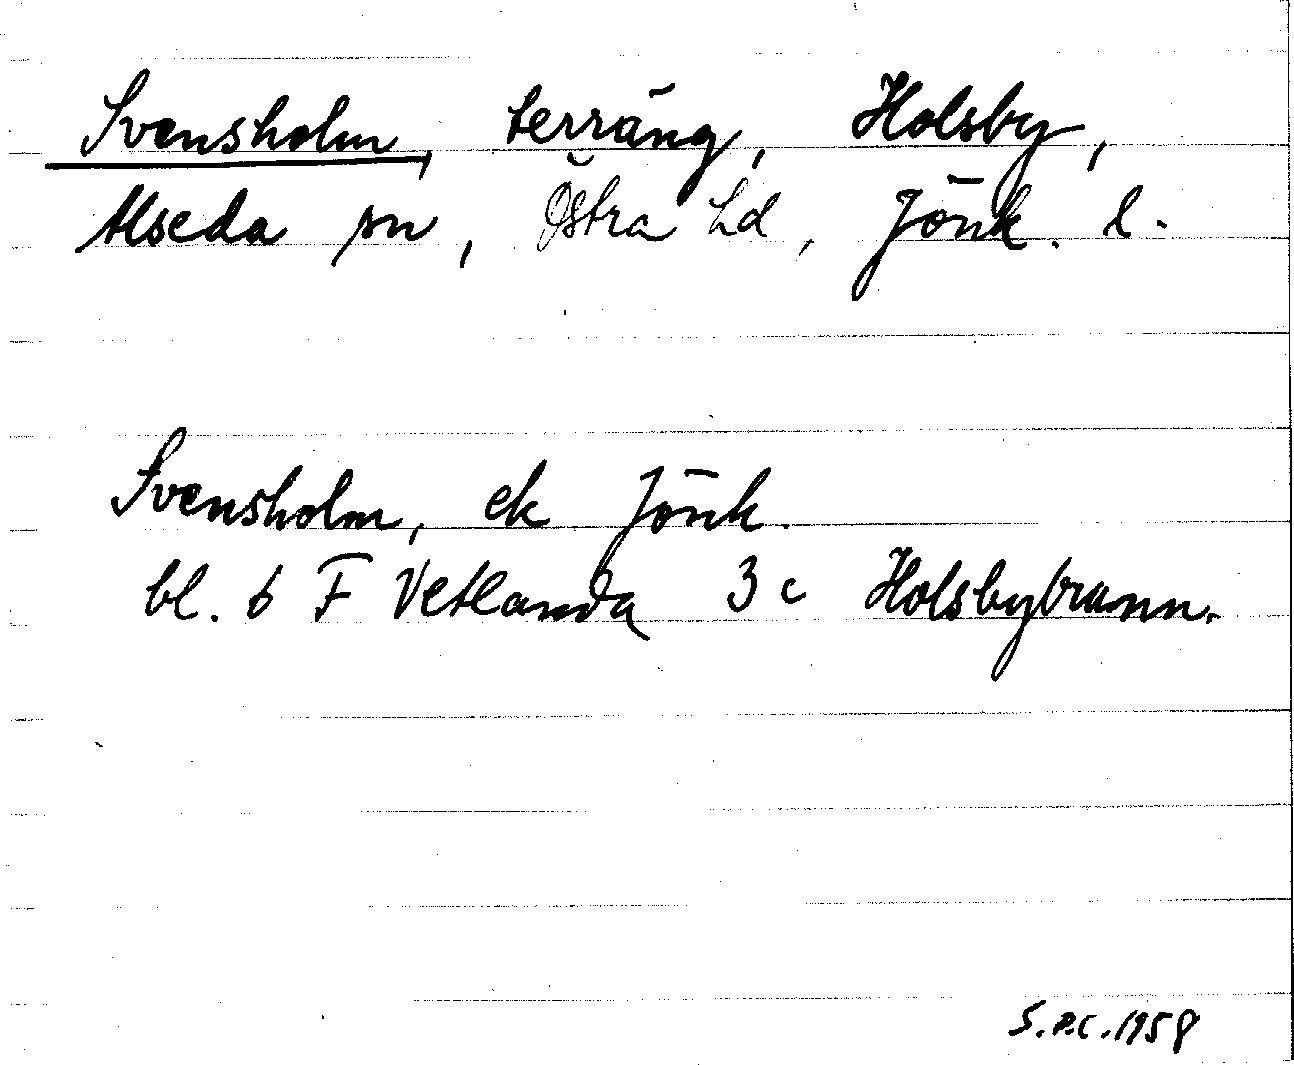 Svensholm, terräng, Holsby,
Alseda sn, Östra hd, Jönk. l.
Svensholm, ek Jönk.
bl. 6 F Vetlanda 3 c Holsbybrunn.
S.P.C. 1958